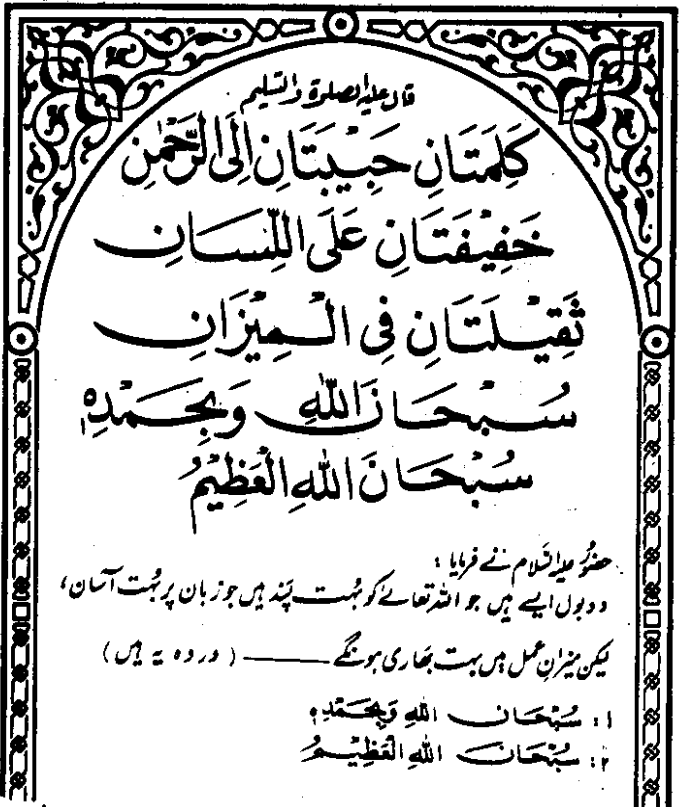 قال علیہ الصلوۃ والتسلیم
كَلِمَتَانِ حَبِيْبَتَانِ اِلَى الرَّحْمٰنِ
خَفِيْفَتَانِ عَلَى اللِّسَانِ
ثَقِيْلَتَانِ فِى الْمِيْزَانِ
سُبْحَانَ اللّٰهِ وَبِحَمْدِهٖ
سُبْحَانَ اللّٰهِ الْعَظِيْمُ
حضورُ علیہ السّلام نے فرمایا :
دو بول ایسے ہیں جو اللہ تعالےٰ کو بہُت پسند ہیں جو زبان پر بہُت آسان ،
لیکن میزانِ عمل میں بہت بھاری ہونگے ——— ( اور وہ یہ ہیں )
۱: سُبْحَانَ اللهِ وَبِحَمْدِهٖ
۲: سُبْحَانَ اللهِ الْعَظِيْمُ